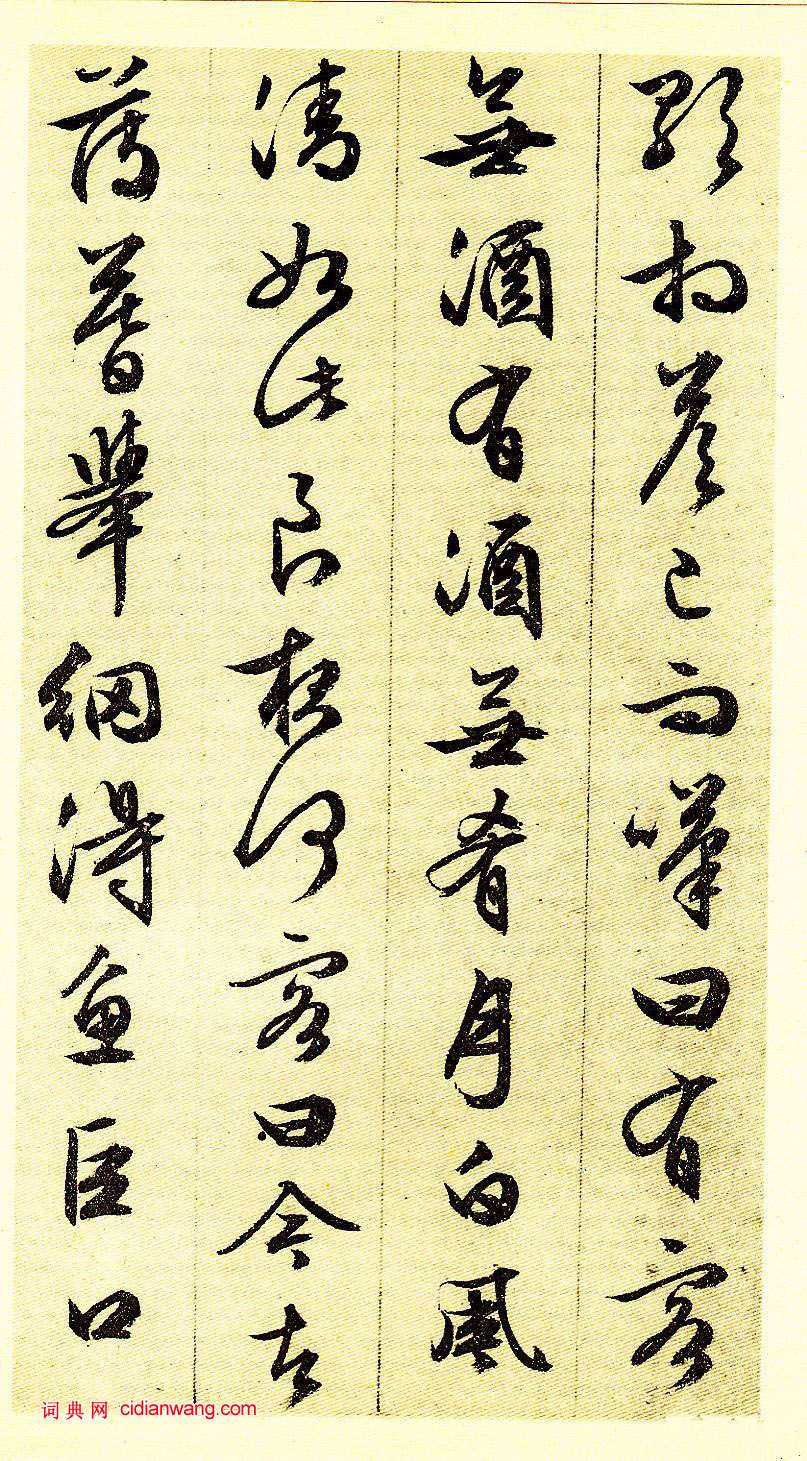 歌相答已而嘆曰有客
無酒有酒無肴月白風
清如此良夜何客曰今者
薄暮舉網得魚巨口
词典网 cidianwang.com